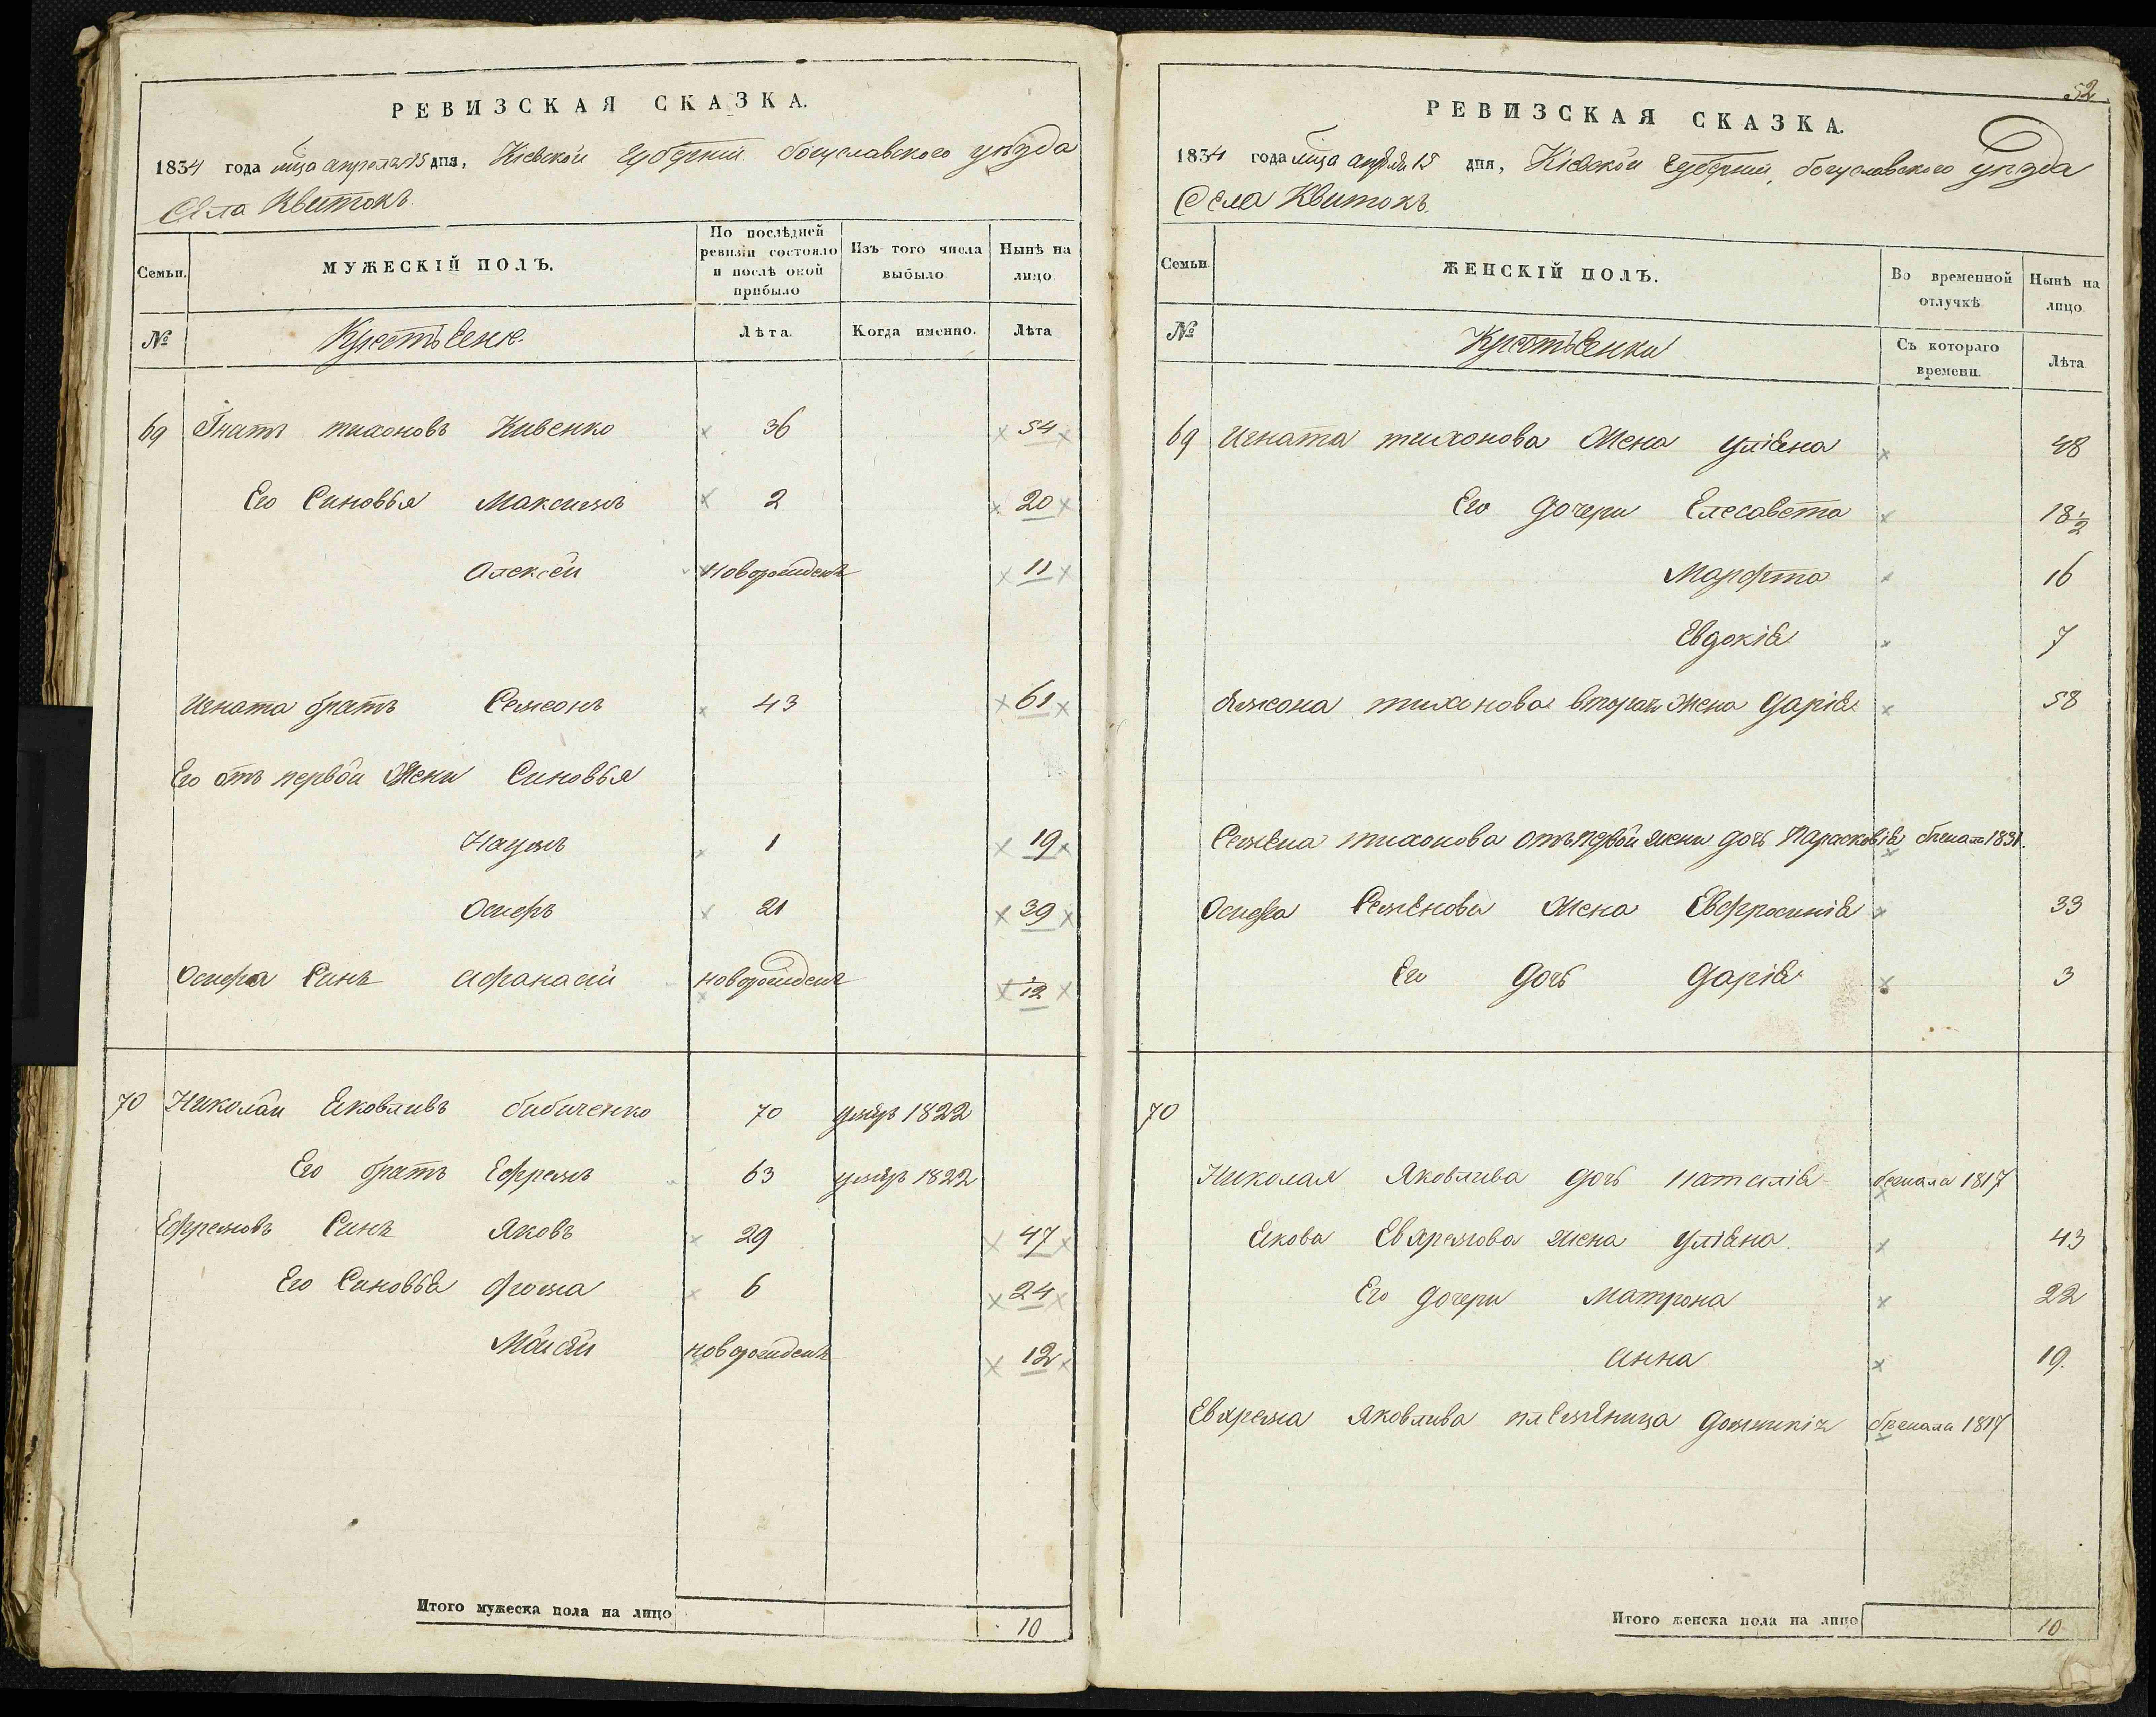 РЕВИЗСКАЯ СКАЗКА.
1834 года мца апреля 15 дня, Кіевской губерніи богуславского уезда
Села Квитокъ
Семьи. МУЖЕСКІЙ ПОЛЪ. По послѣдней ревизіи состояло и послѣ оной прибыло Изъ того числа выбыло Нынѣ на лицо
№ Крестьяне Лѣта. Когда именно. Лѣта
69 Гнатъ тихоновъ Кивенко 36 54
Его Синовья Максимъ 2 20
Алексей новорожденъ 11
Игната братъ Семеонъ 43 61
Его отъ первой Жены Синовья
Наумъ 1 19
Осифъ 21 39
Осифа Синъ Афанасий новорожденъ 12
70 Николай Яковливъ бибиченко 70 умеръ 1822
Его братъ Ефремъ 63 умеръ 1822
Ефремовъ Синъ Яковъ 29 47
Его Синовья фома 6 24
Мойсей новорожденъ 12
Итого мужеска пола на лицо 10
52
РЕВИЗСКАЯ СКАЗКА.
1834 года мца апреля 15 дня, Кіевской губерніи, богуславского уезда
Села Квитокъ.
Семьи. ЖЕНСКІЙ ПОЛЪ. Во временной отлучкѣ Нынѣ на лицо
№ Крестьянки Съ котораго времени. Лѣта
69 Игната тихонова Жена Уліяна 48
Его дочери Елесавета 18½
Марфта 16
Евдокія 7
Семеона тихонова вторая Жена Дарія 58
Семена тихонова отъ первой жени дочь Парасковія бежала 1831.
Осифа Семенова Жена Евфросинія 33
Его дочь Дарія 3
70
Николая Яковлива дочь Наталія бежала 1817
Якова Евхремова жена Уліяна 43
Его дочери Матрона 22
Анна 19.
Евхрема Яковлива племяница бежала 1817
Итого женска пола на лицо 10